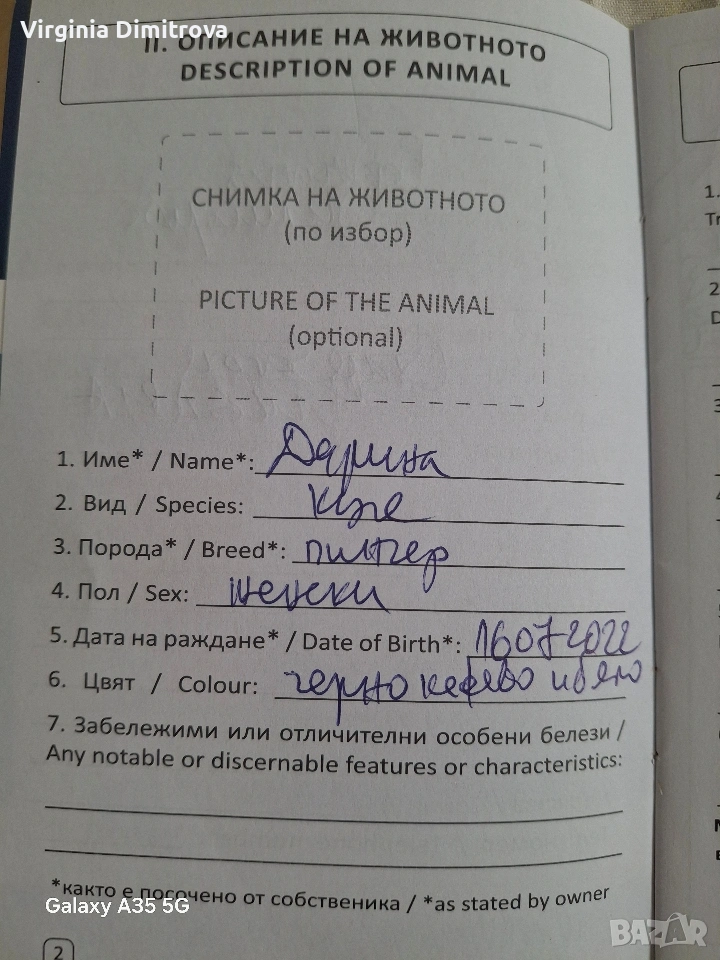 Virginia Dimitrova
II. ОПИСАНИЕ НА ЖИВОТНОТО
DESCRIPTION OF ANIMAL
СНИМКА НА ЖИВОТНОТО
(по избор)
PICTURE OF THE ANIMAL
(optional)
1.
Tr
2
D
3
1. Име* / Name*: Дарина
2. Вид / Species: куче
3. Порода* / Breed*: пинчер
4. Пол / Sex: женски
5. Дата на раждане* / Date of Birth*: 16072022
6. Цвят / Colour: черно кафяво и бяло
7. Забележими или отличителни особени белези /
Any notable or discernable features or characteristics:
*както е посочено от собственика / *as stated by owner
Galaxy A35 5G
2
BAZAR